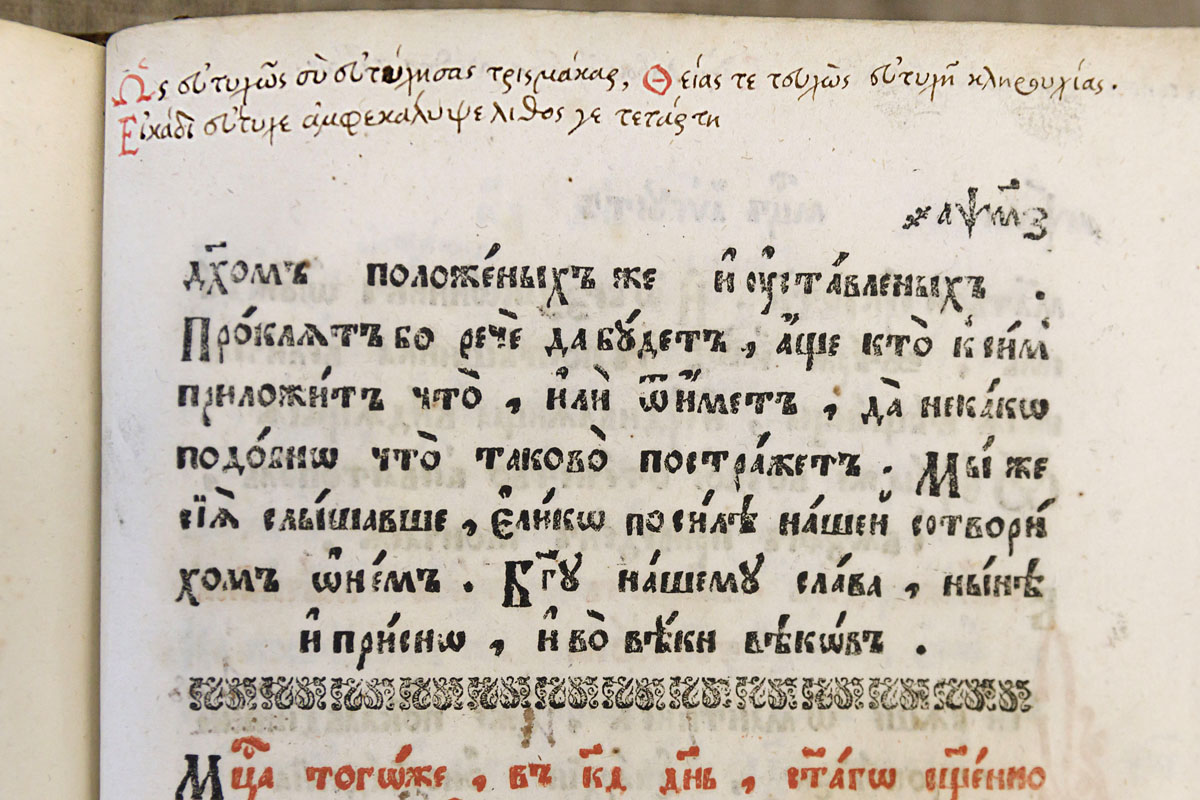 Ὡς εὐτυχῶς σὺ εὐτύχησας τρισμάκαρ, Θείας τε τευχὼς εὐτυχῆ κληρουχίας.
Εἰκάδι εὐτυχε ἀμφεκάλυψε λίθος γε τετάρτη
҂аѱм҃з
дх҃омъ положе́ныхъ же и҆ ѹ҆ста́вленыхъ .
Про́клѧтъ бо речѐ да бꙋ́детъ , а҆́ще кто̀ к̾ си́м̾
приложи́тъ что̀ , и҆лѝ ѿи́метъ , да̀ нека́кѡ
подо́бнѡ что̀ таково̀ постра́жетъ . Мы́ же
сїѧ̀ слы́шавше , є҆ли́кѡ по си́лѣ на́шей сотвори́
хомъ ѡ҆ не́мъ . Бг҃ꙋ на́шемꙋ сла́ва , ны́нѣ
и҆ при́снѡ , и҆ во̀ вѣ́ки вѣкѡ́въ .
Мц҃а тогѡ́же , въ к҃д дн҃ь , ст҃а́гѡ сщ҃е́нно